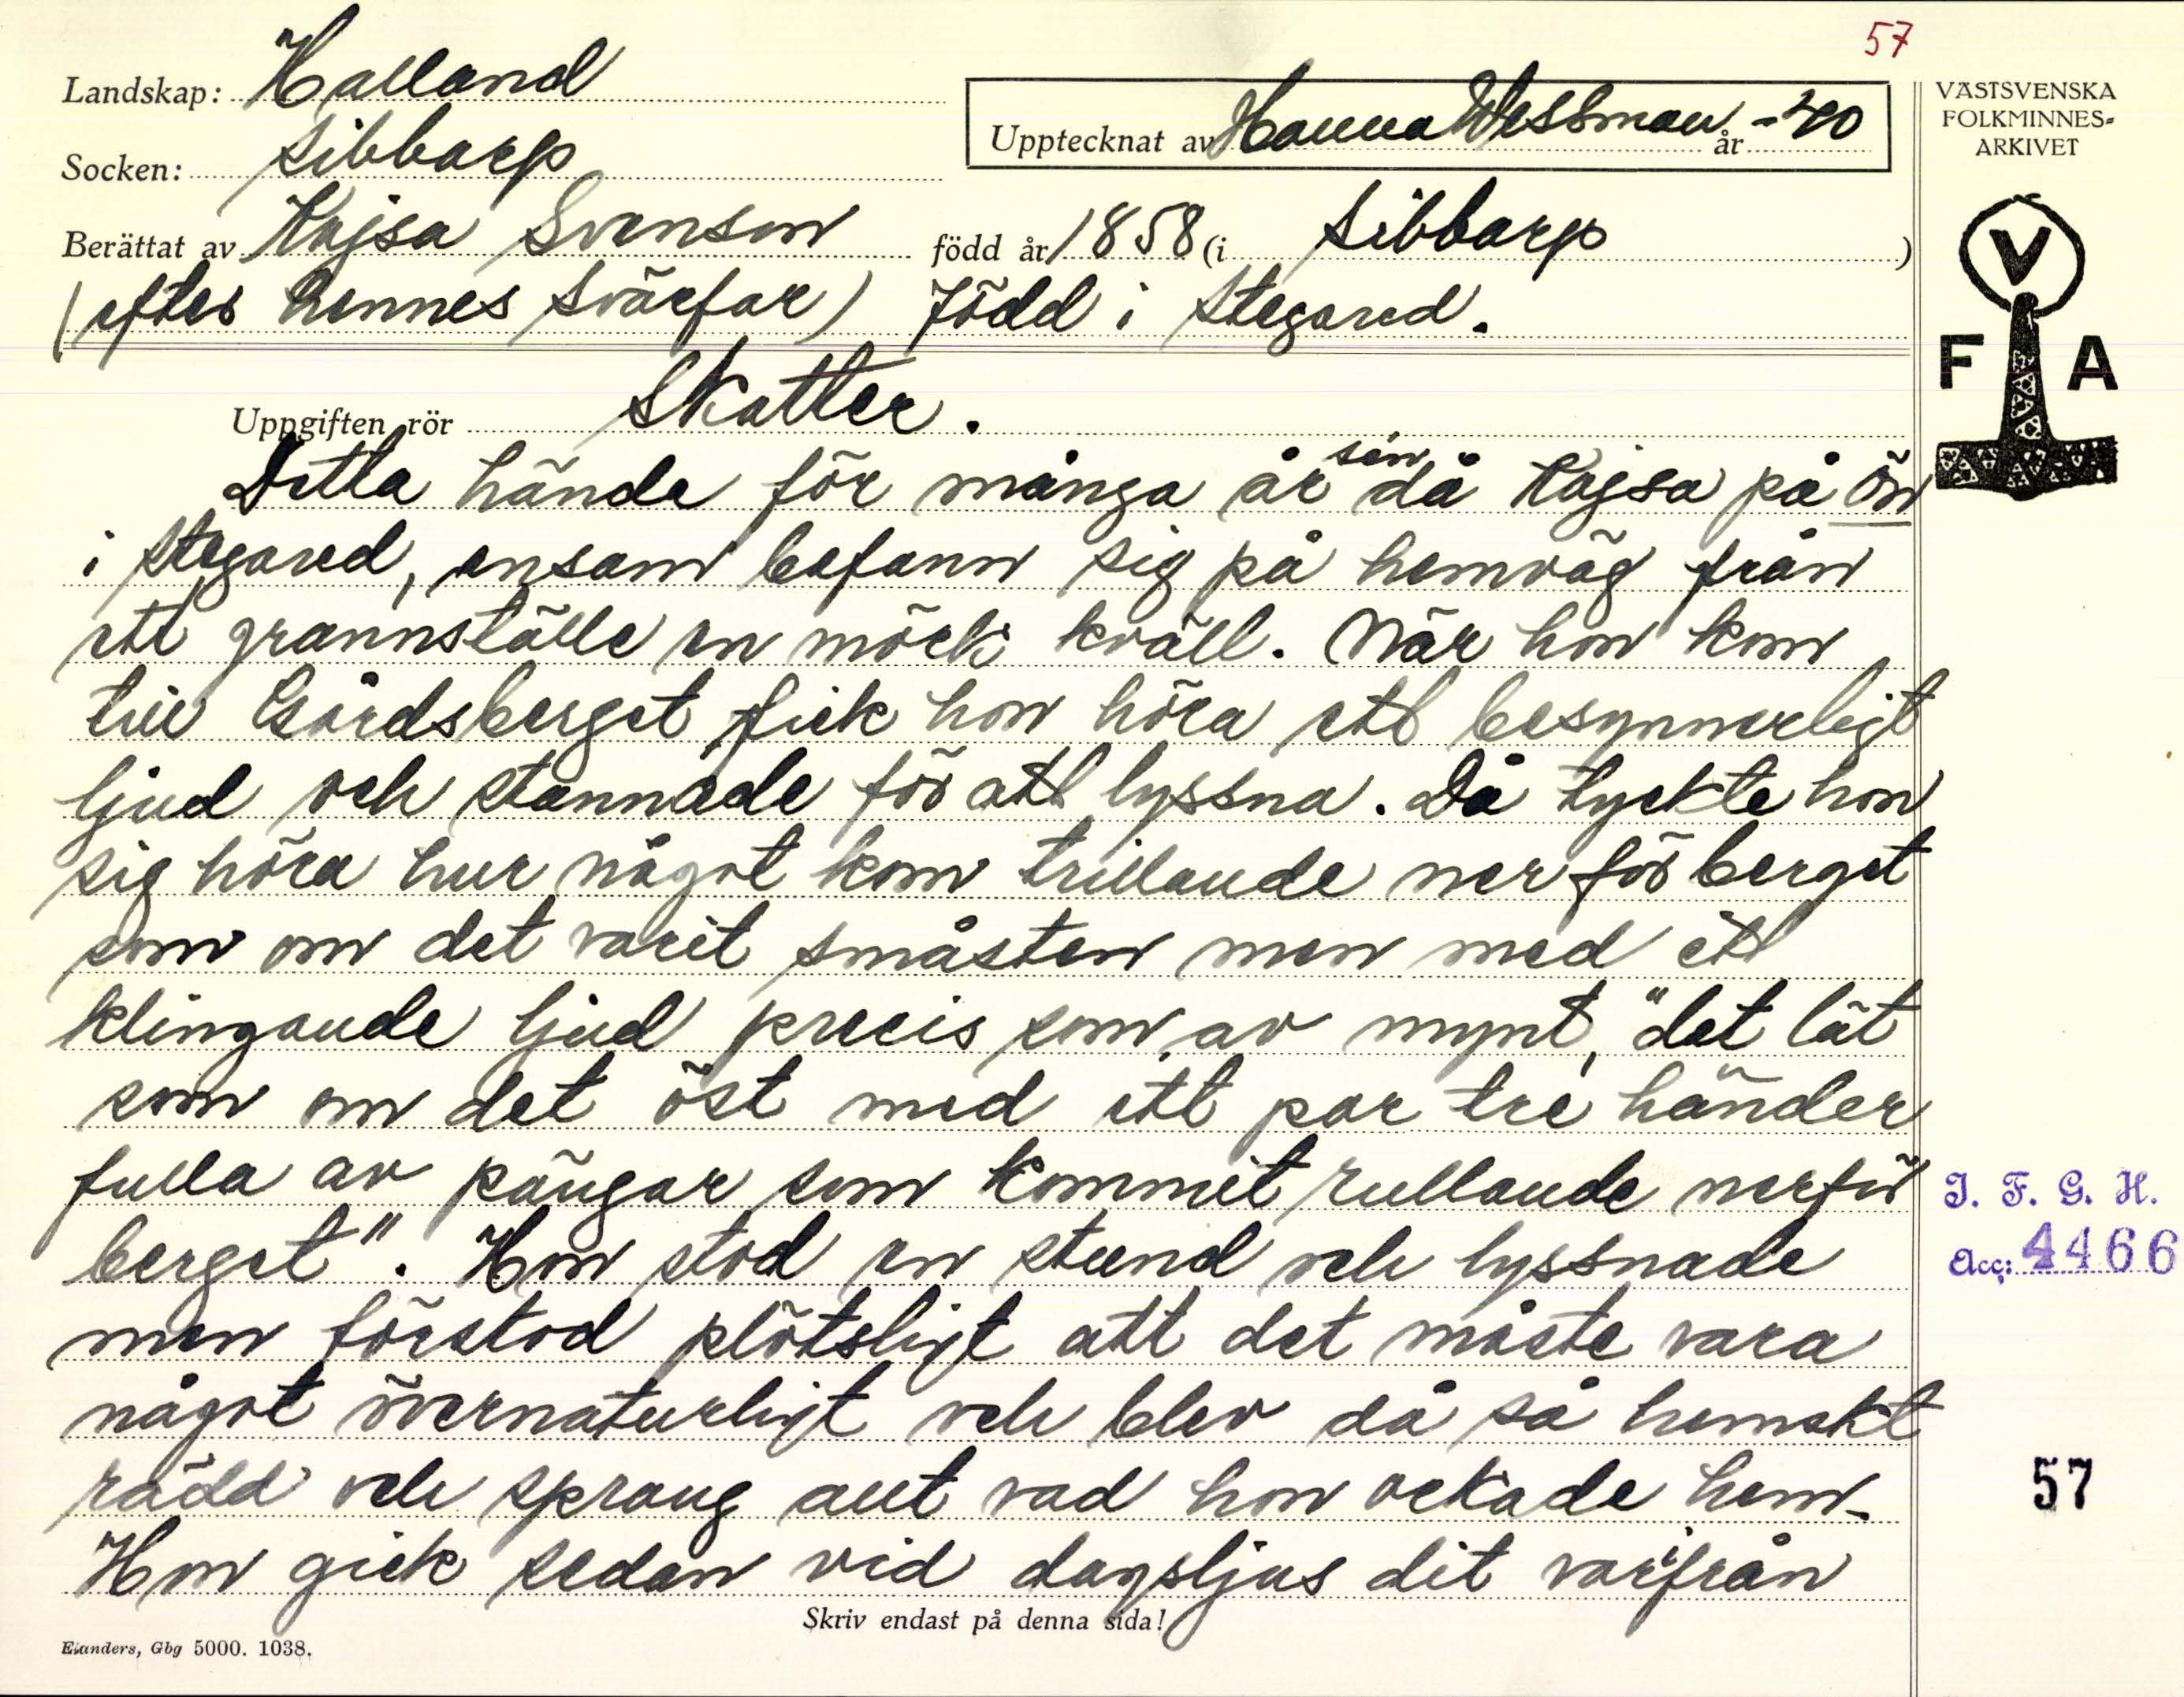 57
Landskap: Halland
Upptecknat av Hanna Wessman år -40
VÄSTSVENSKA
FOLKMINNES-
ARKIVET
Socken: Sibbarp
Berättat av Kajsa Svenson född år 1858 (i Sibbarp)
(efter hennes svärfar) Född i Stegared.
V
F A
Uppgiften rör Skatter.
Detta hände för många år sen då Kajsa på Ön
i Stegared, ensam befann sig på hemväg från
ett grannställe en mörk kväll. När hon kom
till Gårdsberget fick hon höra ett besynnerligt
ljud och stannade för att lyssna. Då tyckte hon
sig höra hur något kom trillande ner för berget
som om det varit småsten men med ett
klingande ljud precis som av mynt, "det lät
som om det öst med ett par tre händer
fulla av pängar som kommit rullande nerför
berget". Hon stod en stund och lyssnade
men förstod plötsligt att det måste vara
något övernaturligt och blev då så hemskt
rädd och sprang allt vad hon orkade hem.
Hon gick sedan vid dagsljus dit varifrån
Skriv endast på denna sida!
Elanders, Gbg 5000. 1038.
I. F. G. H.
Acc: 4466
57